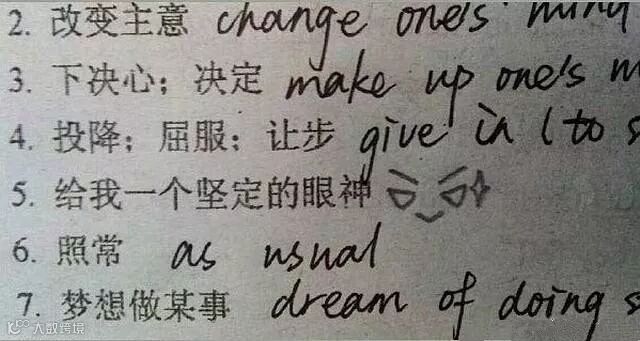 2. 改变主意 change one's mind
3. 下决心；决定 make up one's m
4. 投降；屈服；让步 give in (to s
5. 给我一个坚定的眼神
6. 照常 as usual
7. 梦想做某事 dream of doing s
大数跨境